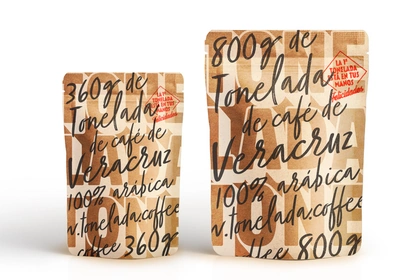 360g de
Tonelada
de café de
Veracruz
100% arábica
w.tonelada.coffee
coffee 360g
LA 1ª
TONELADA
ESTÁ EN TUS
MANOS
Felicidades
800g de
Tonelada
de café de
Veracruz
100% arábica
w.tonelada.coffee
ffee 800g
LA 1ª
TONELADA
ESTÁ EN TUS
MANOS
Felicidades